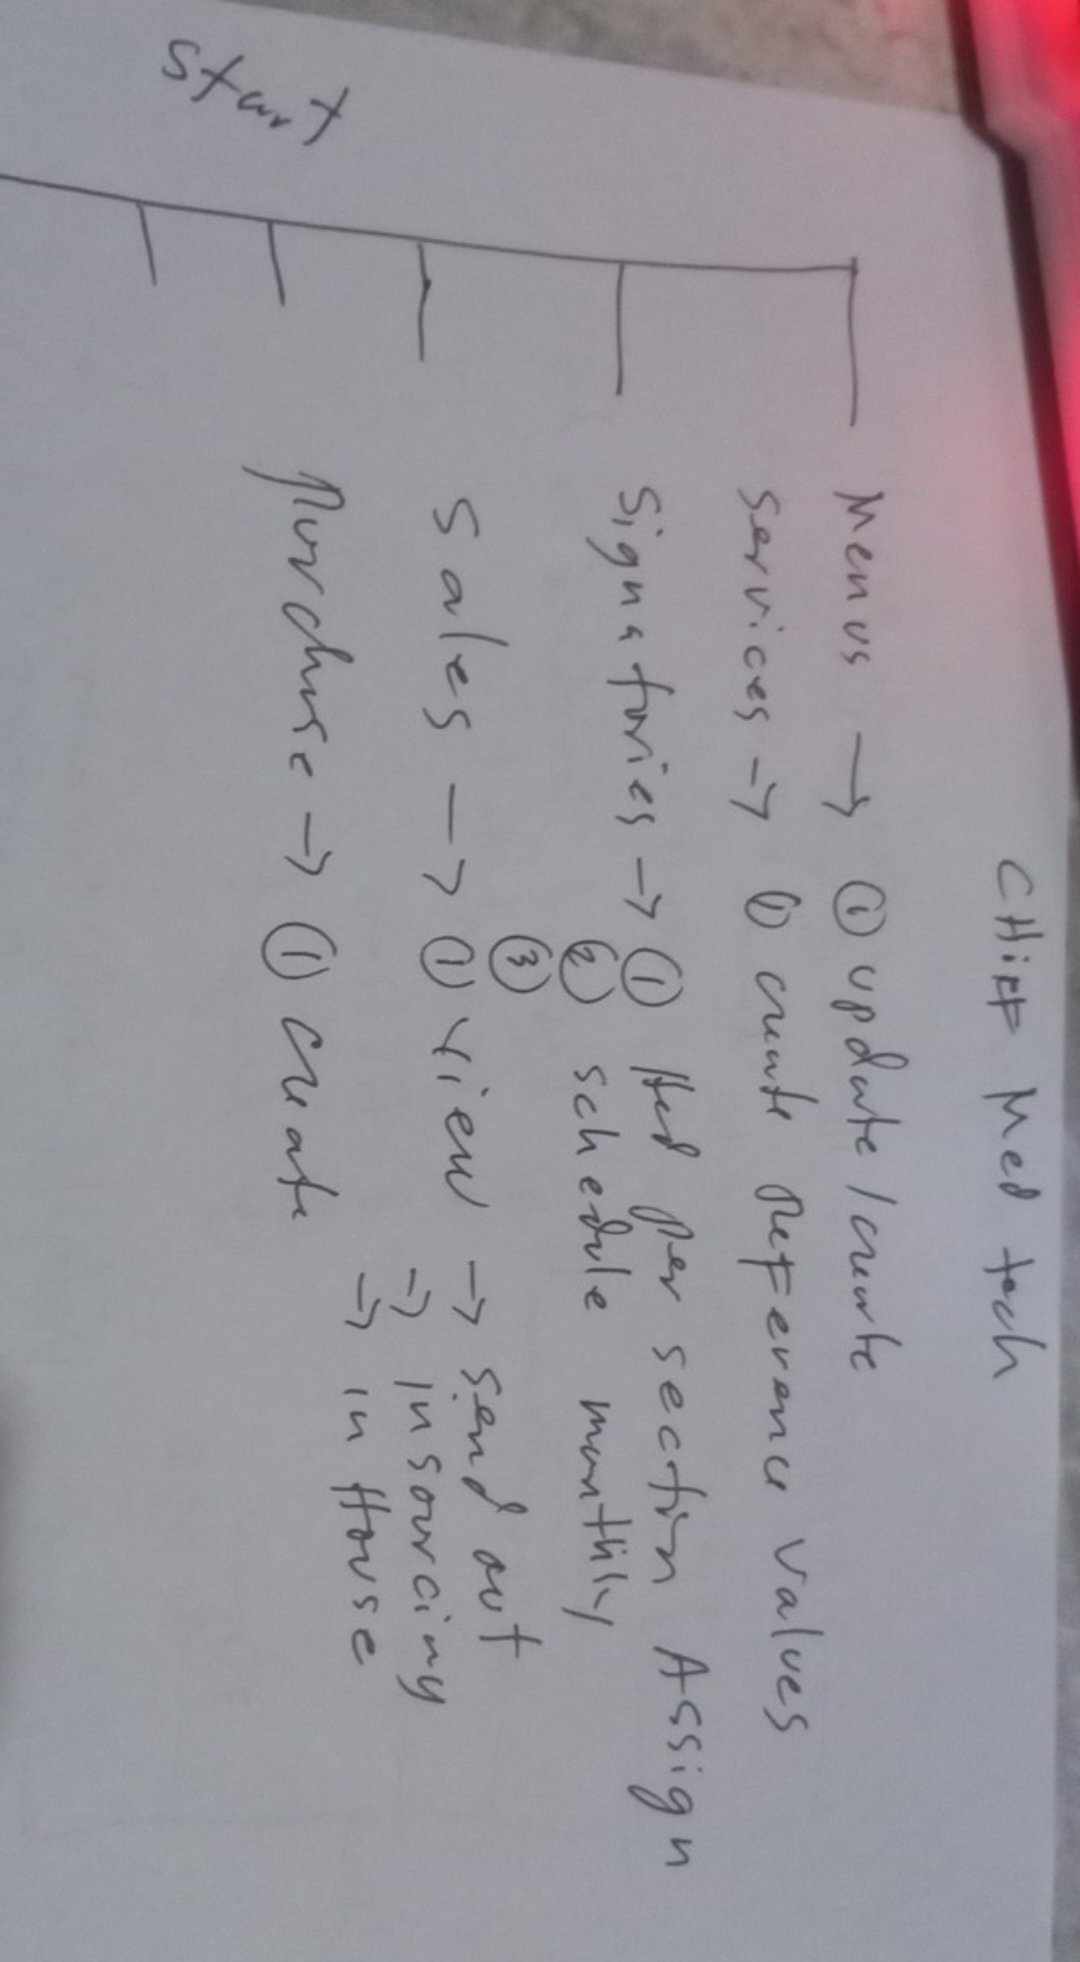 CHieF Med tech
Menus → ① update / create
Services → ① create Reference Values
Signatories → ① Hed per section Assign
② schedule monthly
③
Sales → ① view → send out
→ insourcing
→ in House
purchase → ① create
Start